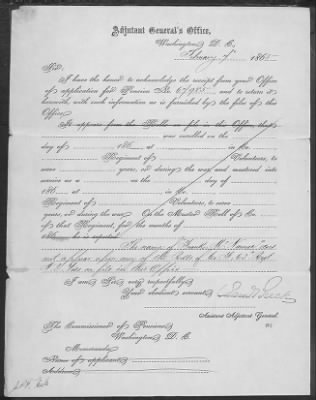 Adjutant General's Office,
Washington D. C.,
February 7" 1865
Sir:
I have the honor to acknowledge the receipt from your Office
of application for Pension No. 67985 and to return it
herewith, with such information as is furnished by the files of this
Office.
It appears from the Rolls on file in this Office, that
was enrolled on the
day of 186 , at in Co.
Regiment of Volunteers, to
serve years, or during the war, and mustered into
service as a on the day of
186 , at in Co.
Regiment of Volunteers, to serve
years, or during the war. On the Muster Roll of Co.
of that Regiment, for the months of
186 , he is reported
The name of does
not appear upon any of the Rolls of Co. 63" Regt
on file in this Office
I am Sir, very respectfully,
Your obedient servant,
Assistant Adjutant General.
The Commissioner of Pensions,
Washington, D. C.
Memoranda.
Name of applicant
Address